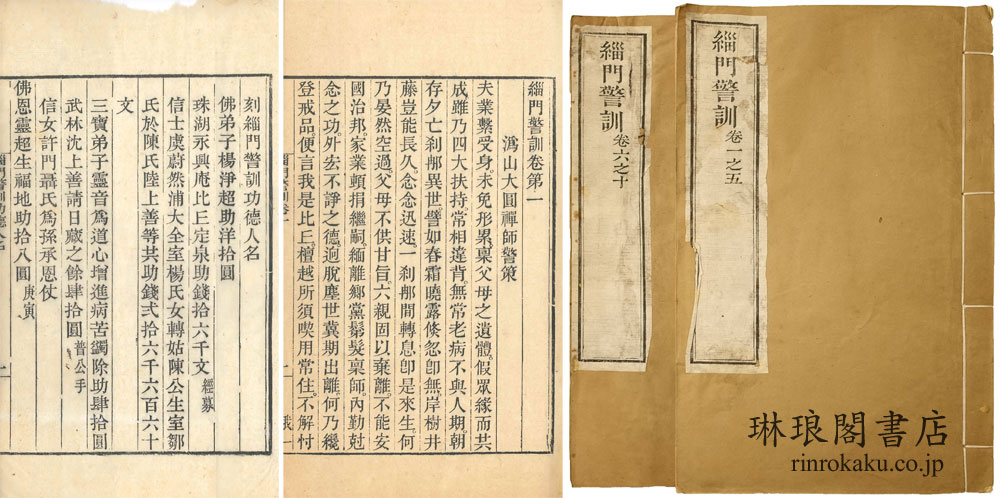 刻緇門警訓功德人名
佛弟子楊淨超助洋拾圓
珠湖永興庵比丘定泉助錢拾六千文 經募
信士虞蔚然浦大全室楊氏女轉姑陳公生室鄒
氏於陳氏陸上善等共助錢弍拾六千六百六十
文
三寶弟子靈音爲道心增進病苦蠲除助肆拾圓
武林沈上善請日藏之餘肆拾圓 普公手
信女許門聶氏爲孫承恩仗
佛恩靈超生福地助拾八圓 庚寅
緇門警訓功德人名
緇門警訓卷第一
溈山大圓禪師警策
夫業繫受身。未免形累。稟父母之遺體。假眾緣而共
成。雖乃四大扶持。常相違背。無常老病。不與人期。朝
存夕亡。剎那異世。譬如春霜曉露。倏忽卽無。岸樹井
藤。豈能長久。念念迅速。一剎那間。轉息卽是來生。何
乃晏然空過。父母不供甘旨。六親固以棄離。不能安
國治邦。家業頓捐繼嗣。緬離鄉黨。鬀髮稟師。內勤剋
念之功。外宏不諍之德。迥脫塵世。冀期出離。何乃纔
登戒品。便言我是比丘。檀越所須。喫用常住。不解忖
緇門警訓卷一
緇門警訓 卷六之十
緇門警訓 卷一之五
琳琅閣書店
rinrokaku.co.jp